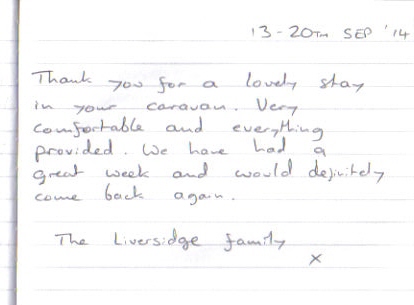 13-20TH SEP '14
Thank you for a lovely stay
in your caravan. Very
comfortable and everything
provided. We have had a
great week and would definitely
come back again.
The Liversidge family
x